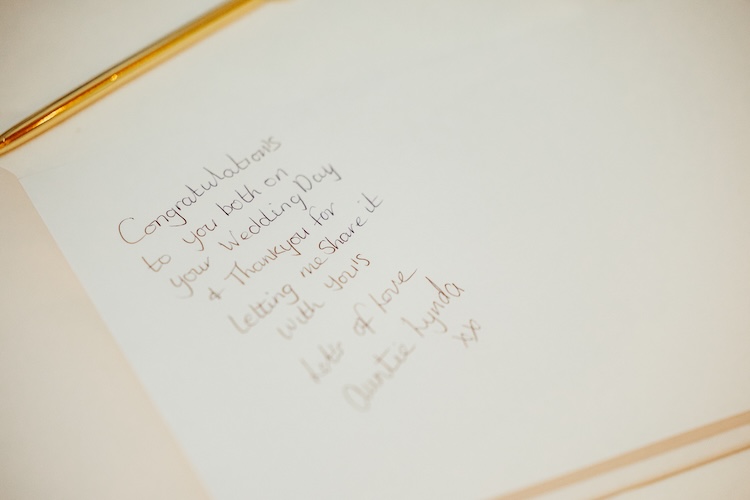 Congratulations
to you both on
your Wedding Day
+ Thankyou for
letting me share it
with you's
Lots of Love
Auntie Lynda
xx